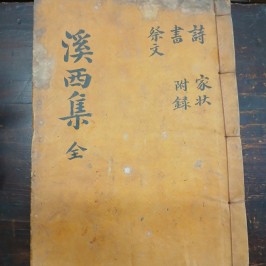 詩 家狀
書 附錄
祭文
溪西集 全